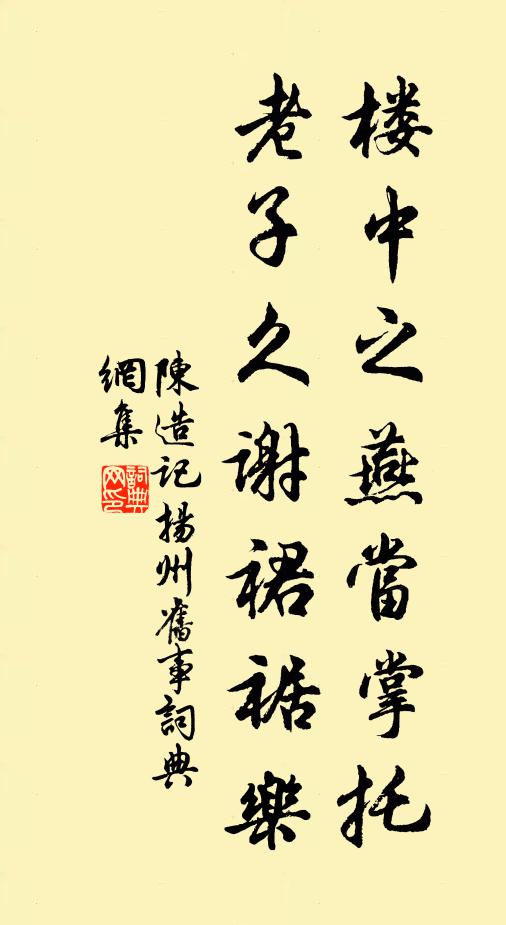 楼中之燕當掌托
老子久谢裙裾樂
陳造记揚州舊事詞典
網集
詞典
网印